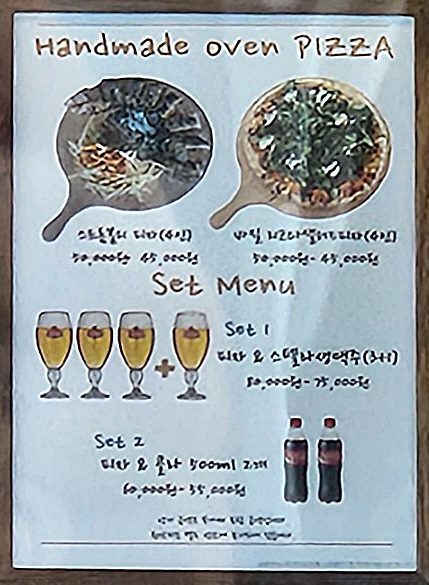 Handmade oven PIZZA
스트롬볼리 피자(4인)
50,000원- 45,000원
피자(4인)
50,000원- 45,000원
Set Menu
Set 1
피자 & 스텔라생맥주(3+1)
80,000원- 75,000원
Set 2
피자 & 콜라 500ml 2개
60,000원- 55,000원